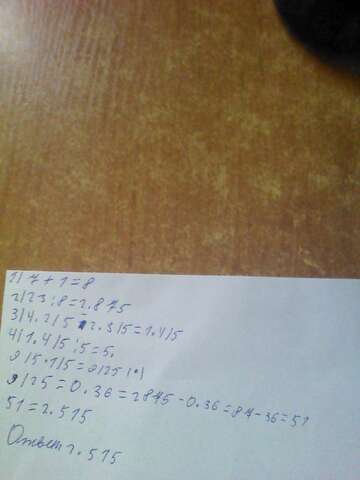 1) 7 + 1 = 8
2) 23 : 8 = 2.875
3) 4. 2/5 - 2. 3/5 = 1. 4/5
4) 1. 4/5 : 5 = 5.
9/5 · 1/5 = 9/25 (·)
9/25 = 0.36 = 2875 - 0.36 = 87 - 36 = 51
51 = 2.515
Ответ 2.515